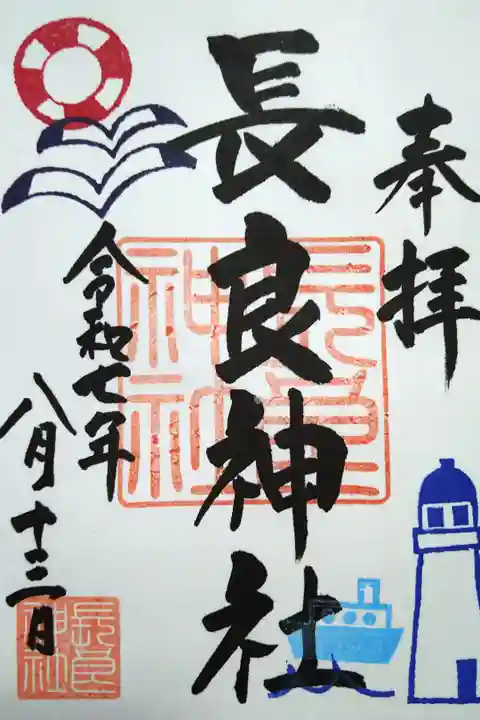 奉拝
長良神社
令和七年
八月十三日
長良
神社
長良
神社